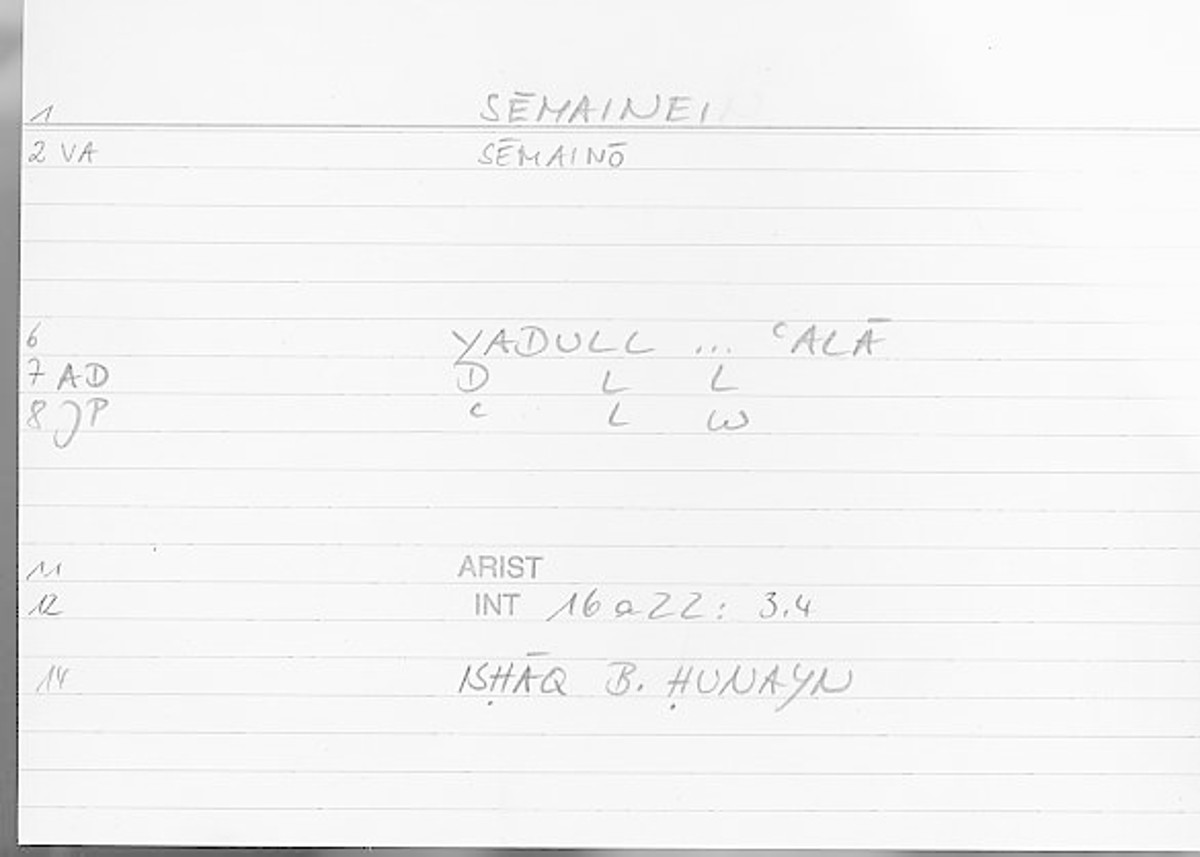 1 SĒMAINEI
2 VA SĒMAINŌ
6 YADULL ... ʿALĀ
7 AD D L L
8 JP ʿ L W
11 ARIST
12 INT 16a22: 3.4
14 ISḤĀQ B. ḤUNAYN